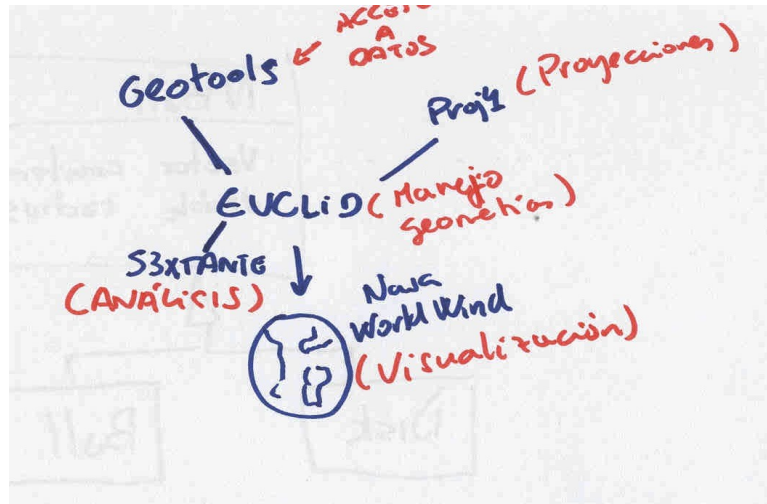 ACCESO
A
DATOS
Geotools
Proj4 (Proyecciones)
EUCLiD (Manejo
geometrías)
S3XTANTE
(ANÁLiSIS)
Nasa
World Wind
(Visualización)
Disk